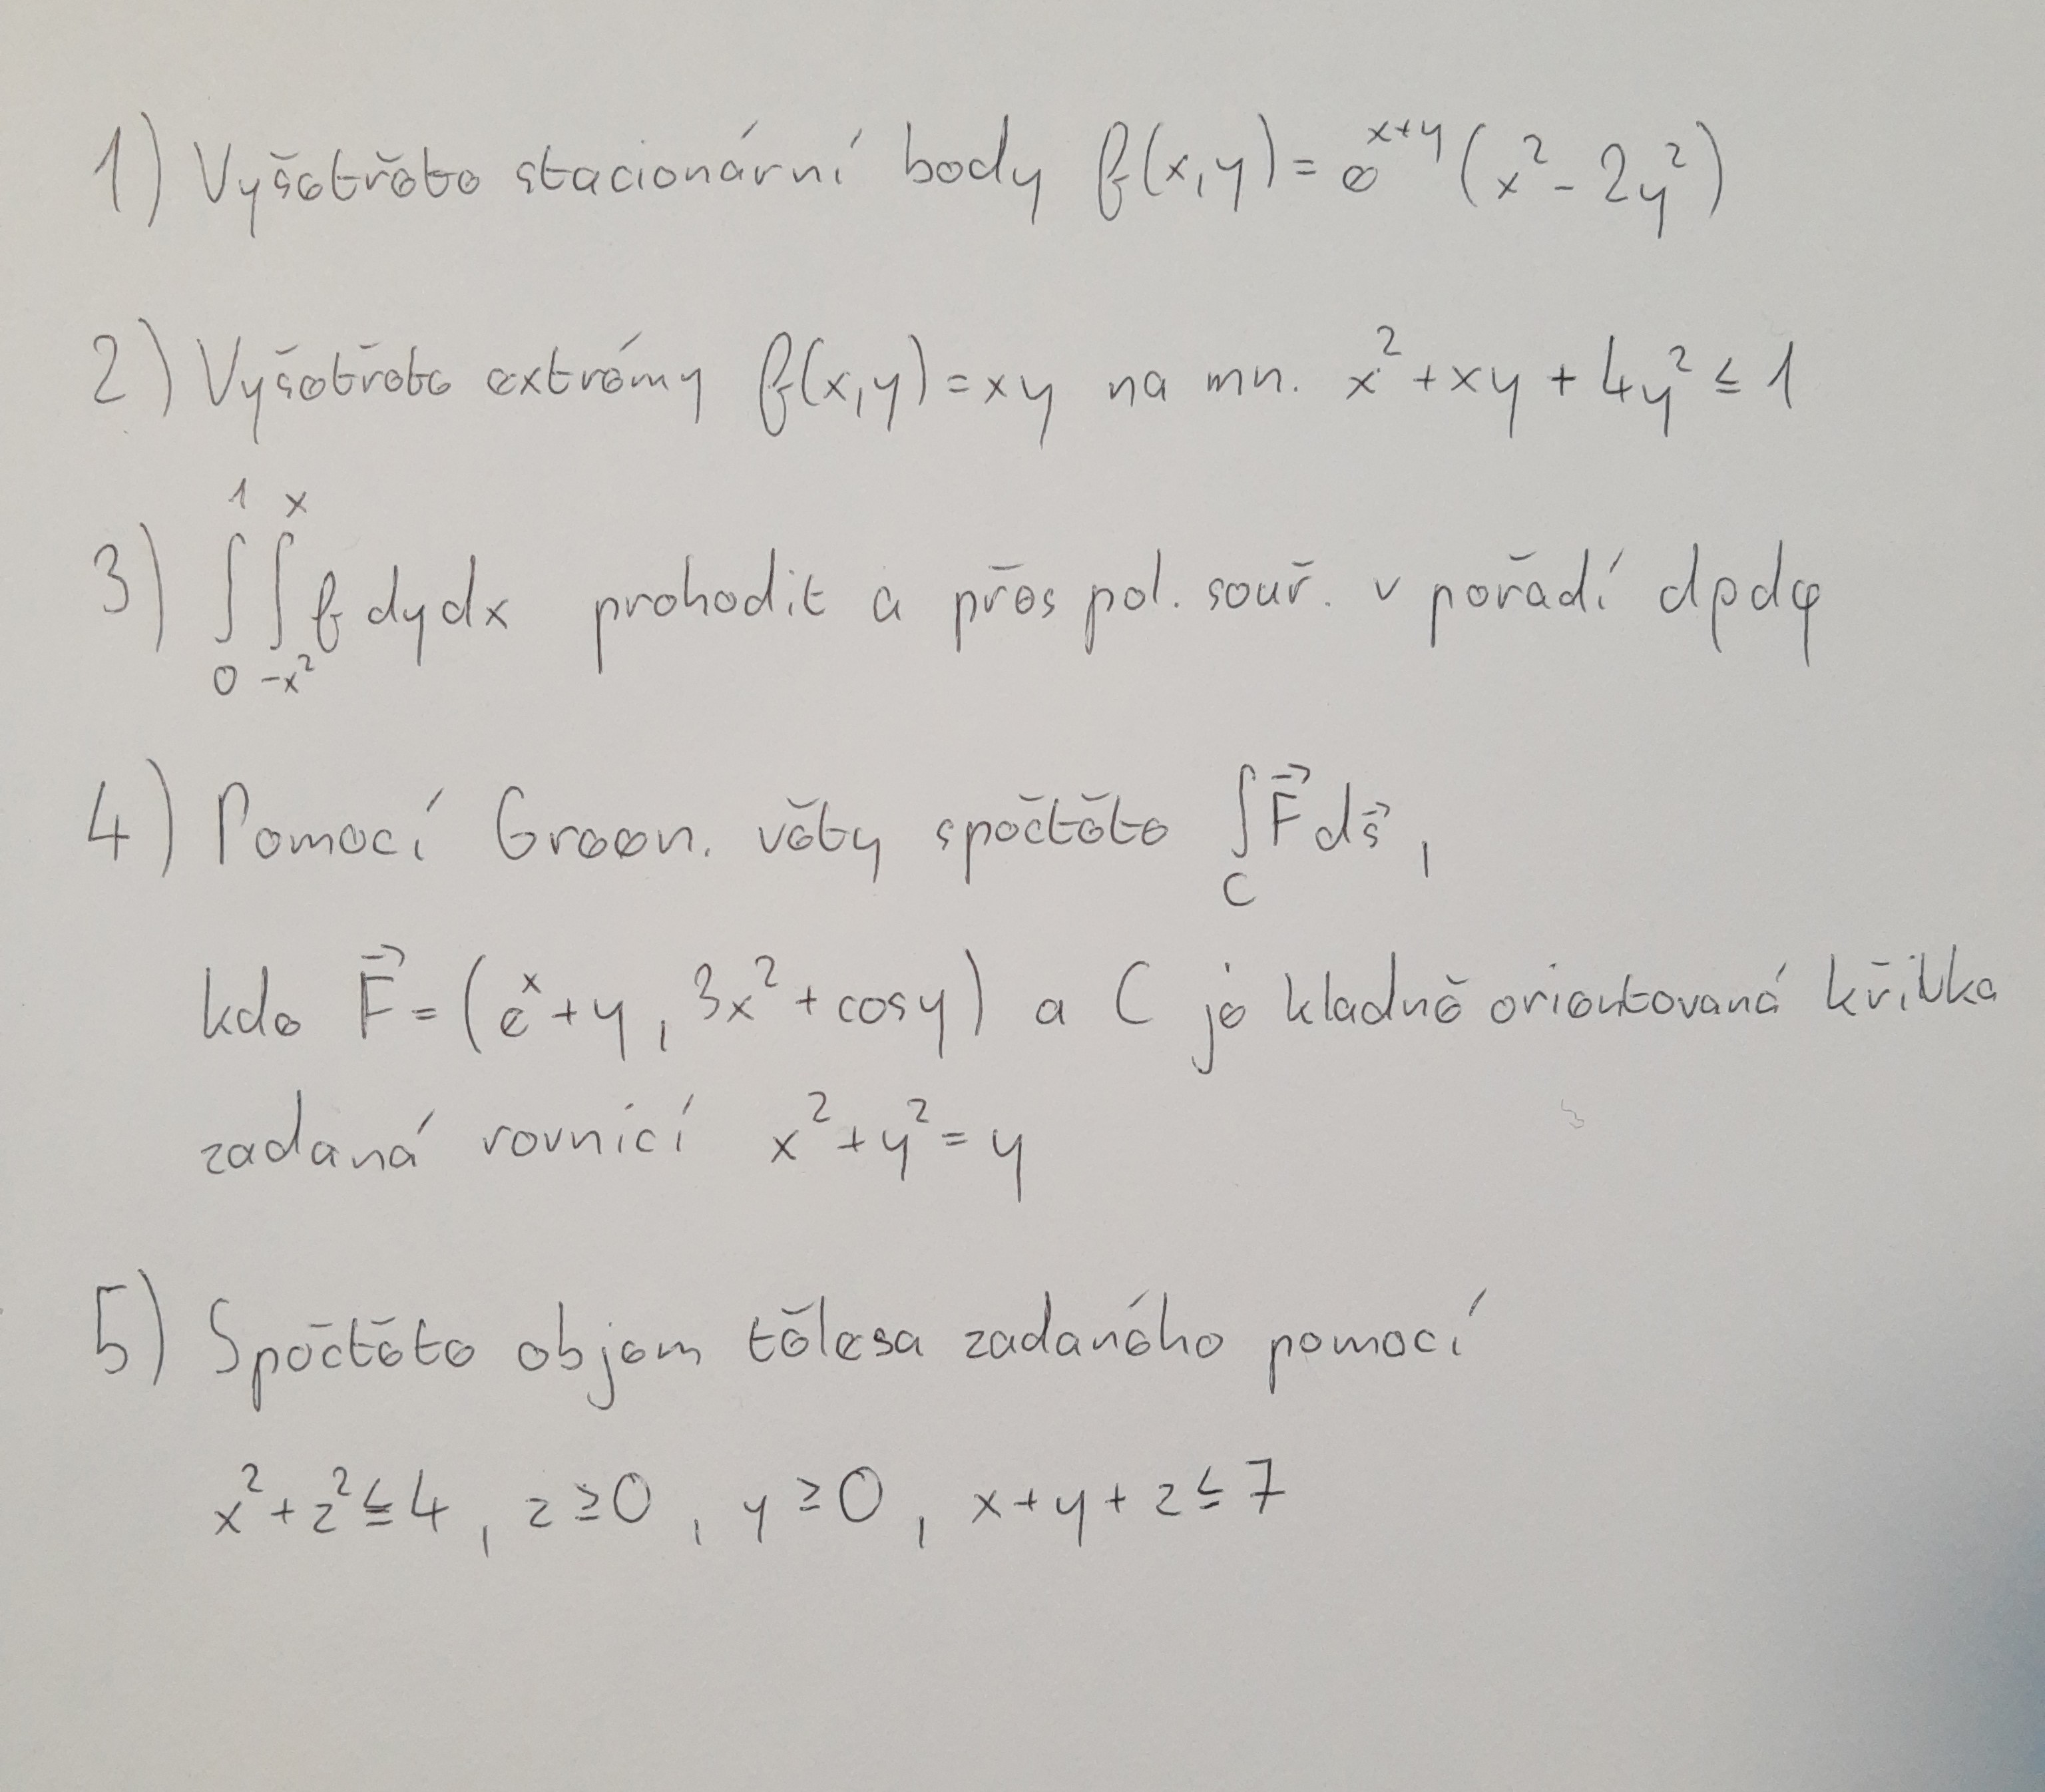 1) Vyšetřete stacionární body f(x,y) = e^(x+y) (x² - 2y²)
2) Vyšetřete extrémy f(x,y) = xy na mn. x² + xy + 4y² ≤ 1
3) ∫₀¹ ∫₋ₓ²ˣ f dydx prohodit a přes pol. souř. v pořadí dρdφ
4) Pomocí Green. věty spočtěte ∫_C F⃗ ds⃗,
kde F⃗ = (eˣ + y, 3x² + cosy) a C je kladně orientovaná křivka
zadaná rovnicí x² + y² = y
5) Spočtěte objem tělesa zadaného pomocí
x² + z² ≤ 4, z ≥ 0, y ≥ 0, x + y + z ≤ 7